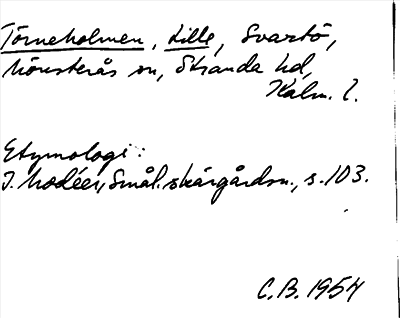 Törneholmen, Lille, Svartö,
Mönsterås sn, Stranda hd,
Kalm. l.
Etymologi:
I. Modéer, Smål. skärgårdsn., s. 103.
C.B. 1954